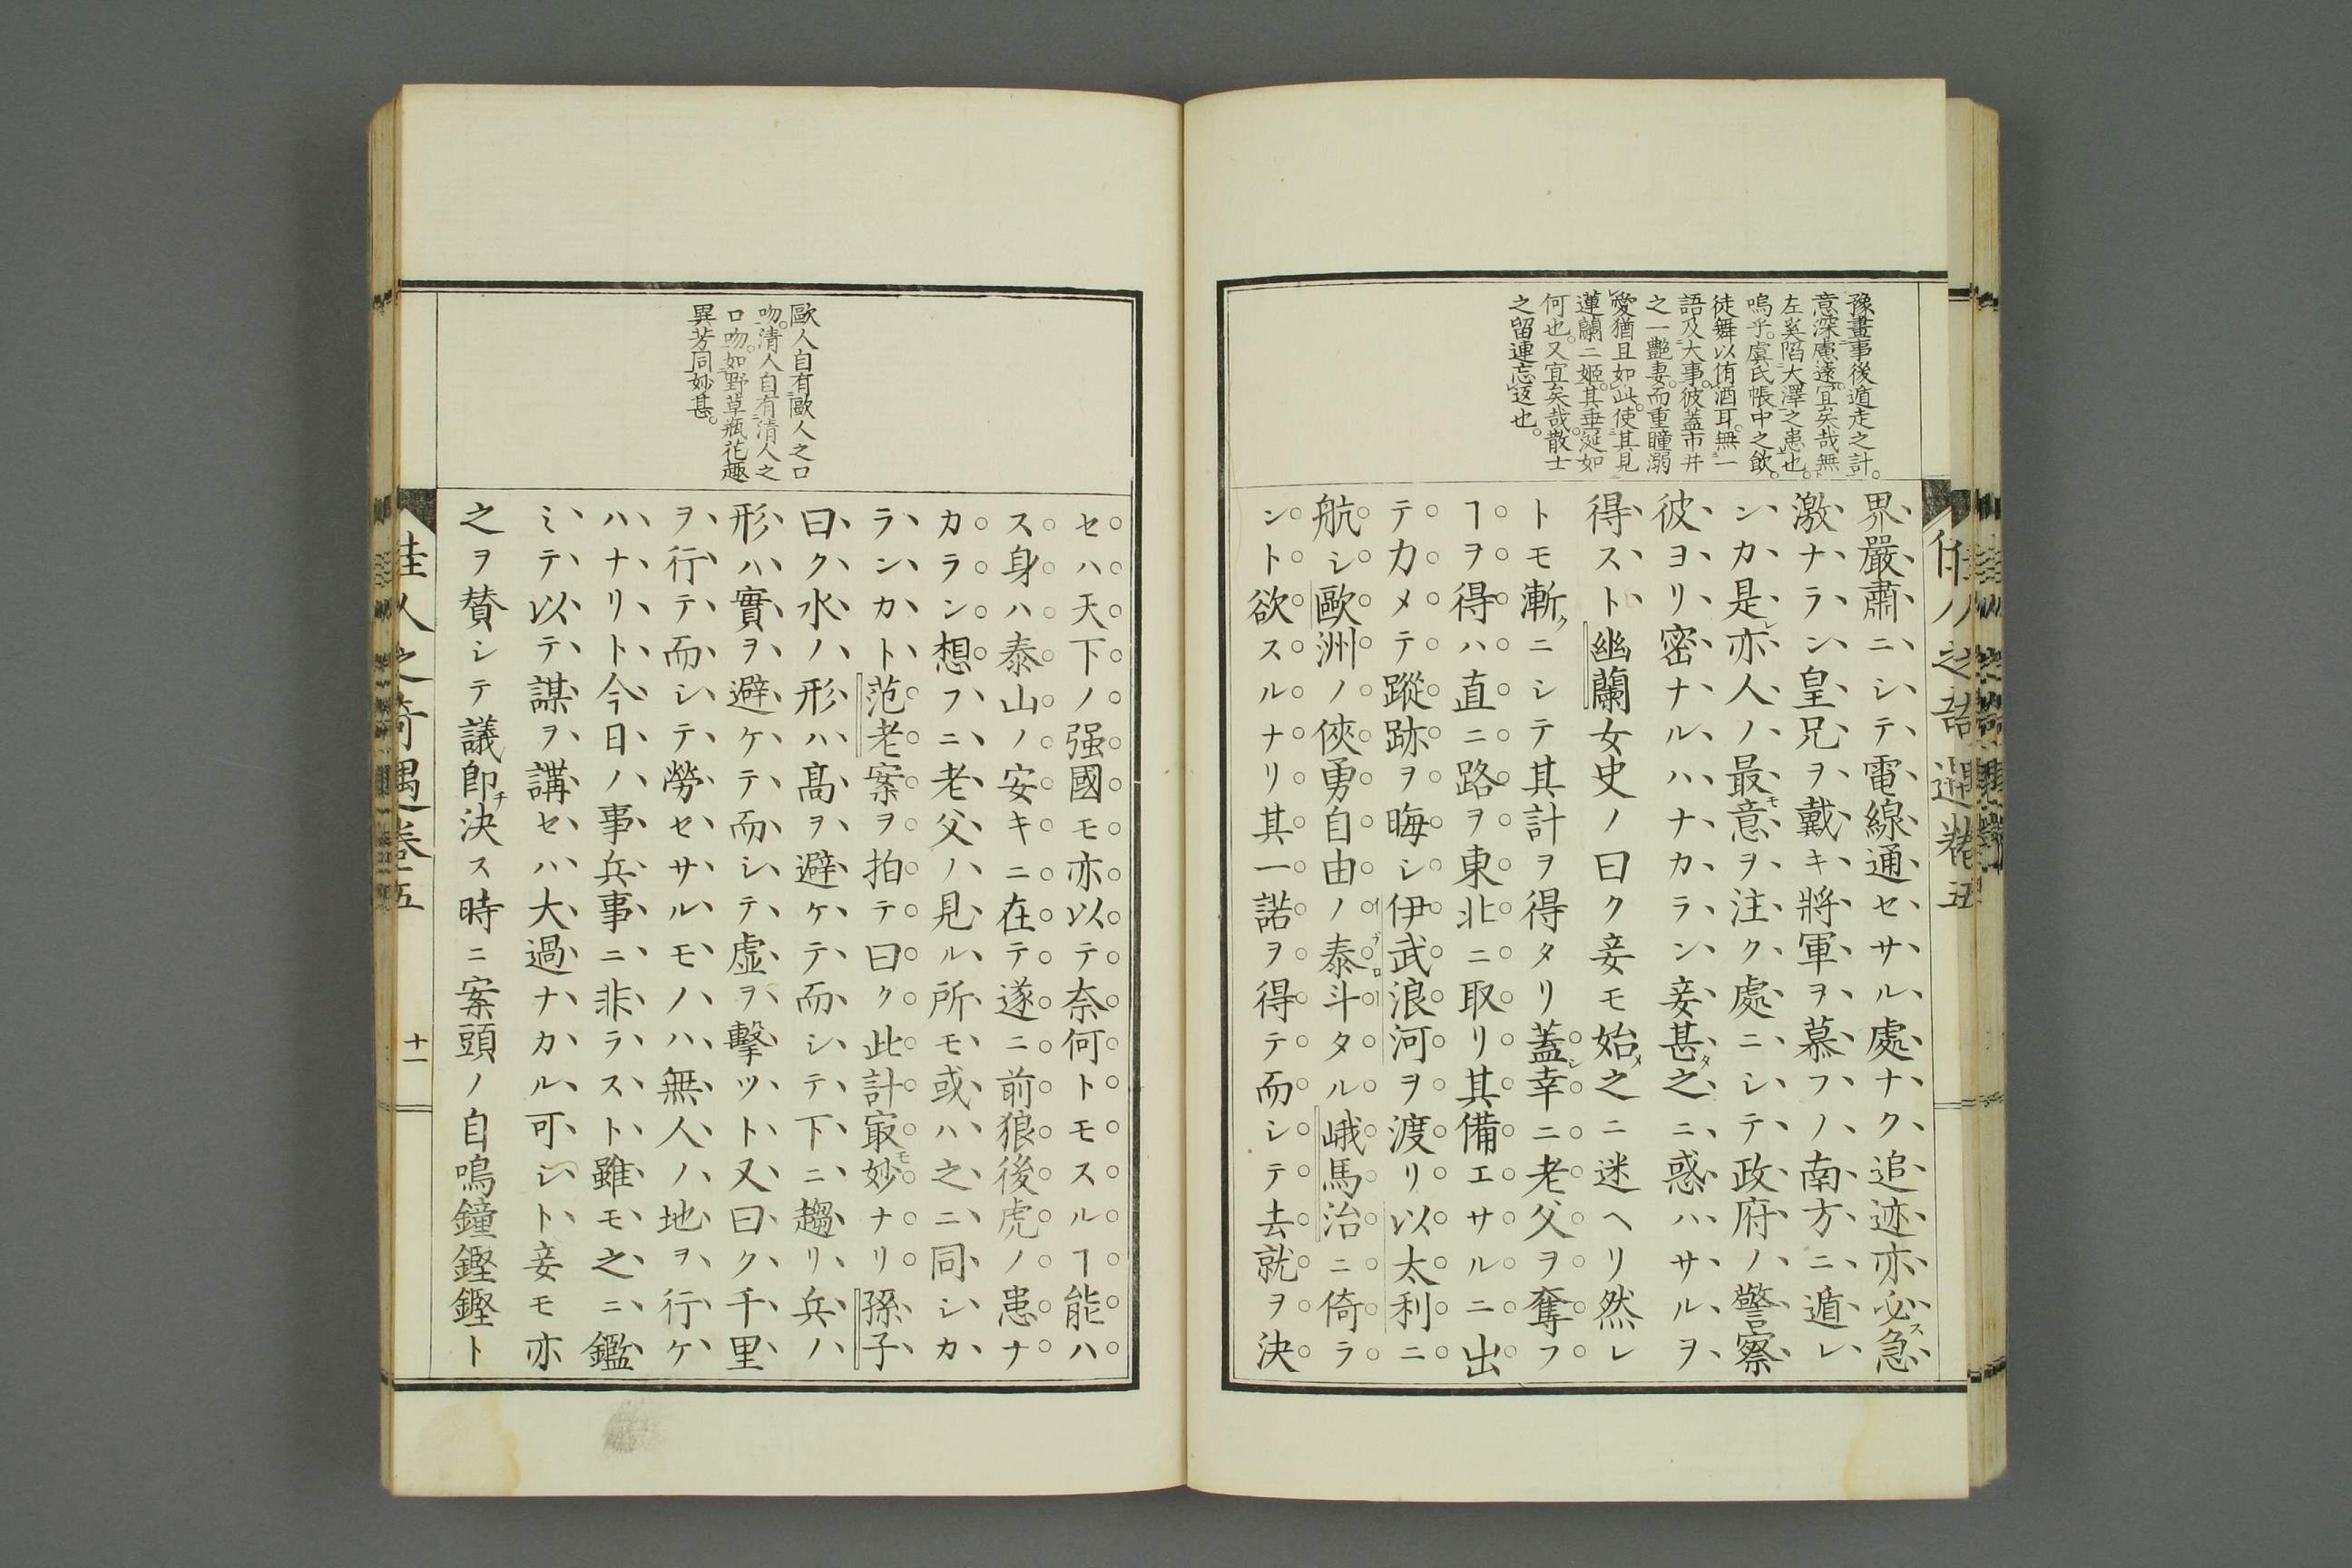 豫畫事後遁走之計。
意深慮遠。宜矣哉無
左奚陷大澤之患也。
嗚乎。虞氏帳中之飲。
徒舞以侑酒耳。無一
語及大事。彼蓋市井
之一艷妻。而重瞳溺
愛猶且如此。使其見
蓮蘭二姬。其垂涎如
何也。又宜矣哉。散士
之留連忘返也。
界嚴肅ニシテ電線通セサル處ナク追迹亦必ス急
激ナラン皇兄ヲ戴キ將軍ヲ慕フノ南方ニ遁レ
ンカ是レ亦人ノ最モ意ヲ注ク處ニシテ政府ノ警察
彼ヨリ密ナルハナカラン妾甚タ之ニ惑ハサルヲ
得スト幽蘭女史ノ曰ク妾モ始メ之ニ迷ヘリ然レ
トモ漸クニシテ其計ヲ得タリ蓋シ幸ニ老父ヲ奪フ
ヿヲ得ハ直ニ路ヲ東北ニ取リ其備エサルニ出
テ力メテ蹤跡ヲ晦シ伊武浪河ヲ渡リ以太利ニ
航シ歐洲ノ俠勇自由ノ泰斗タル峨馬治ニ倚ラ
ント欲スルナリ其一諾ヲ得テ而シテ去就ヲ決
佳人之奇遇卷五
歐人自有歐人之口
吻。清人自有清人之
口吻。如野草瓶花趣
異芳同妙甚。
セハ天下ノ强國モ亦以テ奈何トモスルヿ能ハ
ス身ハ泰山ノ安キニ在テ遂ニ前狼後虎ノ患ナ
カラン想フニ老父ノ見ル所モ或ハ之ニ同シカ
ランカト范老案ヲ拍テ曰ク此計㝡モ妙ナリ孫子
曰ク水ノ形ハ高ヲ避ケテ而シテ下ニ趨リ兵ノ
形ハ實ヲ避ケテ而シテ虛ヲ擊ツト又曰ク千里
ヲ行テ而シテ勞セサルモノハ無人ノ地ヲ行ケ
ハナリト今日ノ事兵事ニ非ラスト雖モ之ニ鑑
ミテ以テ謀ヲ講セハ大過ナカル可シト妾モ亦
之ヲ賛シテ議即チ決ス時ニ案頭ノ自鳴鐘鏗鏗ト
佳人之奇遇卷五
十一